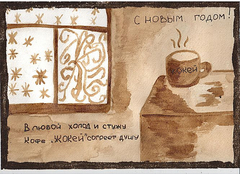 С НОВЫМ ГОДОМ!
ЖОКЕЙ
В любой холод и стужу
Кофе „ЖОКЕЙ" согреет душу